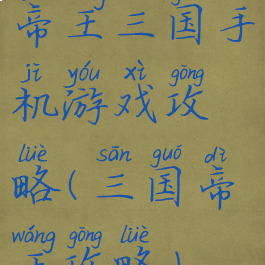 帝王三国手
jī yóu xì gōng
机游戏攻
lüè sān guó dì
略(三国帝
wáng gōng lüè
王攻略)